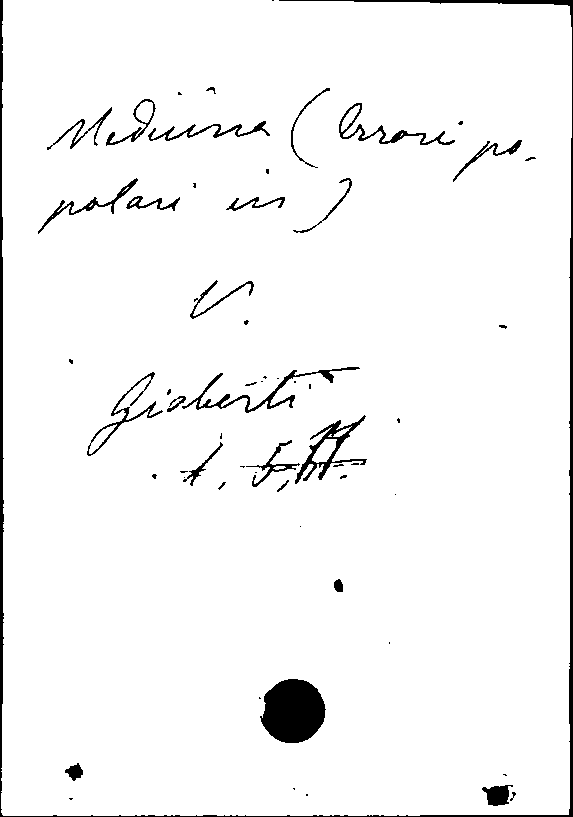 Medicina (Errori po-
polari in)
V.
Gioberti